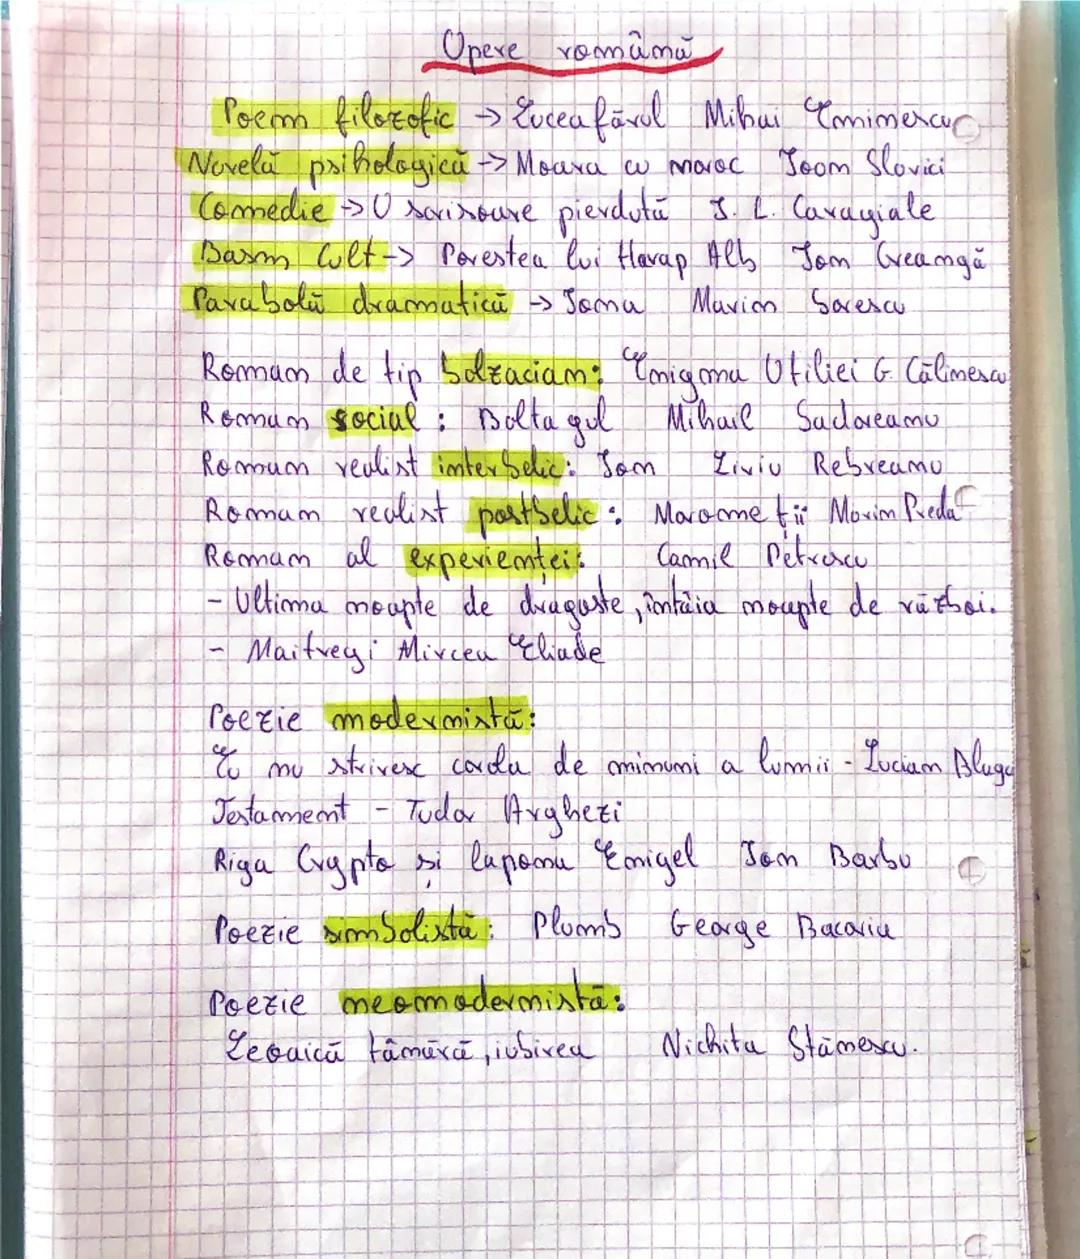 Opere română
Poem filozofic → Luceafărul Mihai Eminescu
Nuvelă psihologică → Moara cu noroc Ioan Slavici
Comedie → O scrisoare pierdută I. L. Caragiale
Basm Cult → Povestea lui Harap Alb Ion Creangă
Parabolă dramatică → Iona Marin Sorescu
Roman de tip balzacian: Enigma Otiliei G. Călinescu
Roman social: Baltagul Mihail Sadoveanu
Roman realist interbelic: Ion Liviu Rebreanu
Roman realist postbelic: Moromeții Marin Preda
Roman al experienței: Camil Petrescu
- Ultima noapte de dragoste, întâia noapte de război.
- Maitreyi Mircea Eliade
Poezie modernistă:
Eu nu strivesc corola de minuni a lumii - Lucian Blaga
Testament - Tudor Arghezi
Riga Crypto și lapona Enigel Ion Barbu
Poezie simbolistă: Plumb George Bacovia
Poezie neomodernistă:
Leoaică tânără, iubirea Nichita Stănescu.